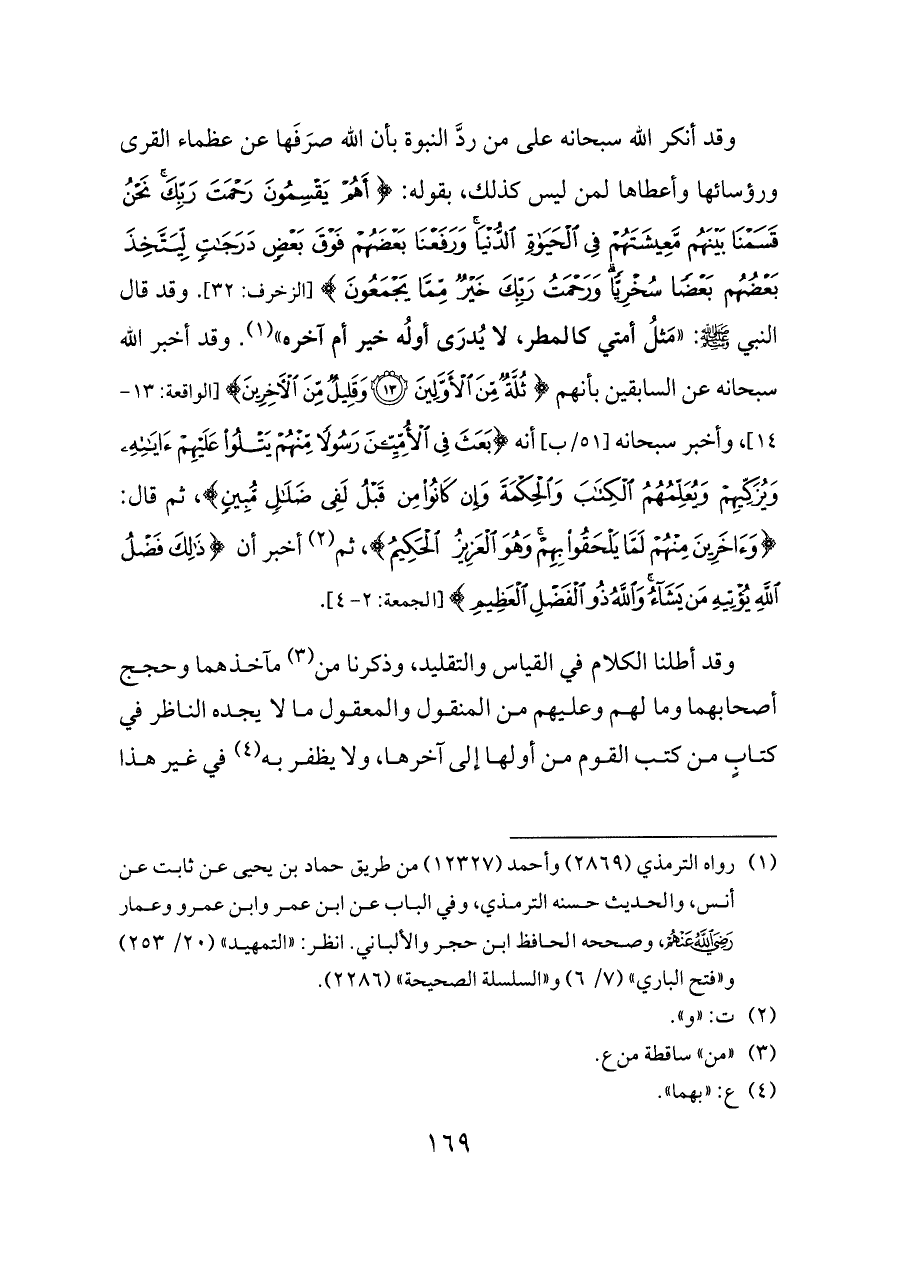 وقد أنكر الله سبحانه على من ردَّ النبوة بأن الله صرَفَها عن عظماء القرى
ورؤسائها وأعطاها لمن ليس كذلك، بقوله: ﴿ أَهُمْ يَقْسِمُونَ رَحْمَتَ رَبِّكَ ۚ نَحْنُ
قَسَمْنَا بَيْنَهُم مَّعِيشَتَهُمْ فِي ٱلْحَيَوٰةِ ٱلدُّنْيَا ۚ وَرَفَعْنَا بَعْضَهُمْ فَوْقَ بَعْضٍ دَرَجَٰتٍ لِّيَتَّخِذَ
بَعْضُهُم بَعْضًا سُخْرِيًّا ۗ وَرَحْمَتُ رَبِّكَ خَيْرٌ مِّمَّا يَجْمَعُونَ ﴾ [الزخرف: ٣٢]. وقد قال
النبي ﷺ: «مَثلُ أمتي كالمطر، لا يُدرَى أولُه خير أم آخره»(١). وقد أخبر الله
سبحانه عن السابقين بأنهم ﴿ ثُلَّةٌ مِّنَ ٱلْأَوَّلِينَ ۝١٣ وَقَلِيلٌ مِّنَ ٱلْآخِرِينَ﴾ [الواقعة: ١٣-
١٤]، وأخبر سبحانه [٥١/ب] أنه ﴿بَعَثَ فِي ٱلْأُمِّيِّـۧنَ رَسُولًا مِّنْهُمْ يَتْلُوا۟ عَلَيْهِمْ ءَايَٰتِهِۦ
وَيُزَكِّيهِمْ وَيُعَلِّمُهُمُ ٱلْكِتَٰبَ وَٱلْحِكْمَةَ وَإِن كَانُوا۟ مِن قَبْلُ لَفِي ضَلَٰلٍ مُّبِينٍ﴾، ثم قال:
﴿وَءَاخَرِينَ مِنْهُمْ لَمَّا يَلْحَقُوا۟ بِهِمْ ۚ وَهُوَ ٱلْعَزِيزُ ٱلْحَكِيمُ﴾، ثم(٢) أخبر أن ﴿ ذَٰلِكَ فَضْلُ
ٱللَّهِ يُؤْتِيهِ مَن يَشَآءُ ۚ وَٱللَّهُ ذُو ٱلْفَضْلِ ٱلْعَظِيمِ ﴾ [الجمعة: ٢-٤].
وقد أطلنا الكلام في القياس والتقليد، وذكرنا من(٣) مآخذهما وحجج
أصحابهما وما لهم وعليهم من المنقول والمعقول ما لا يجده الناظر في
كتابٍ من كتب القوم من أولها إلى آخرها، ولا يظفر به(٤) في غير هذا
(١) رواه الترمذي (٢٨٦٩) وأحمد (١٢٣٢٧) من طريق حماد بن يحيى عن ثابت عن
أنس، والحديث حسنه الترمذي، وفي الباب عن ابن عمر وابن عمرو وعمار
رَضِيَ اللَّهُ عَنْهُمْ، وصححه الحافظ ابن حجر والألباني. انظر: «التمهيد» (٢٠/ ٢٥٣)
و«فتح الباري» (٧/ ٦) و«السلسلة الصحيحة» (٢٢٨٦).
(٢) ت: «و».
(٣) «من» ساقطة من ع.
(٤) ع: «بهما».
١٦٩